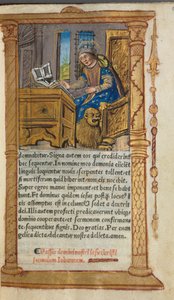 demnabitur. Signa autem eos qui crediderint
hec sequentur. In nomine meo demonia eiicient
linguis loquentur nouis serpentes tollent: et
si mortiferum quid biberint non eis nocebit.
Super egros manus imponent: et bene habe
bunt. Et dominus iesus postquam locutus
eis assumptus est in celum: et sedet a dextris
dei. Illi autem profecti predicauerunt vbique
domino cooperante et sermonem confirmante
sequentibus signis. Deo gratias. Per euan
gelica dicta deleantur nostra delicta. amen.
Passio domini nostri iesu christi
secundum Johannem.